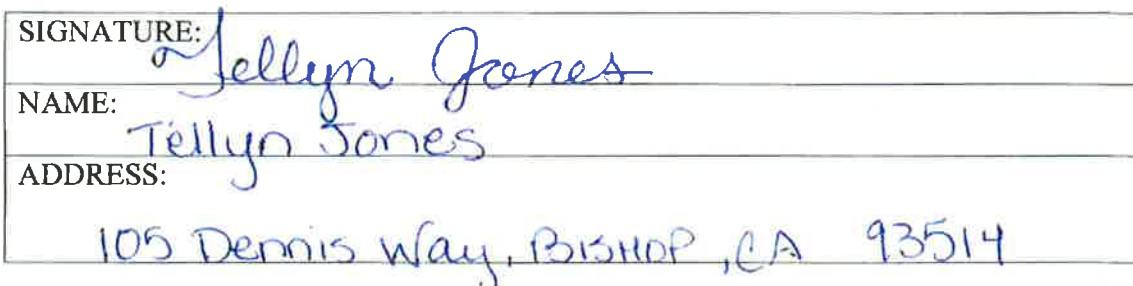 SIGNATURE:
Tellyn Jones
NAME:
Tellyn Jones
ADDRESS:
105 Dennis Way, BISHOP, CA 93514